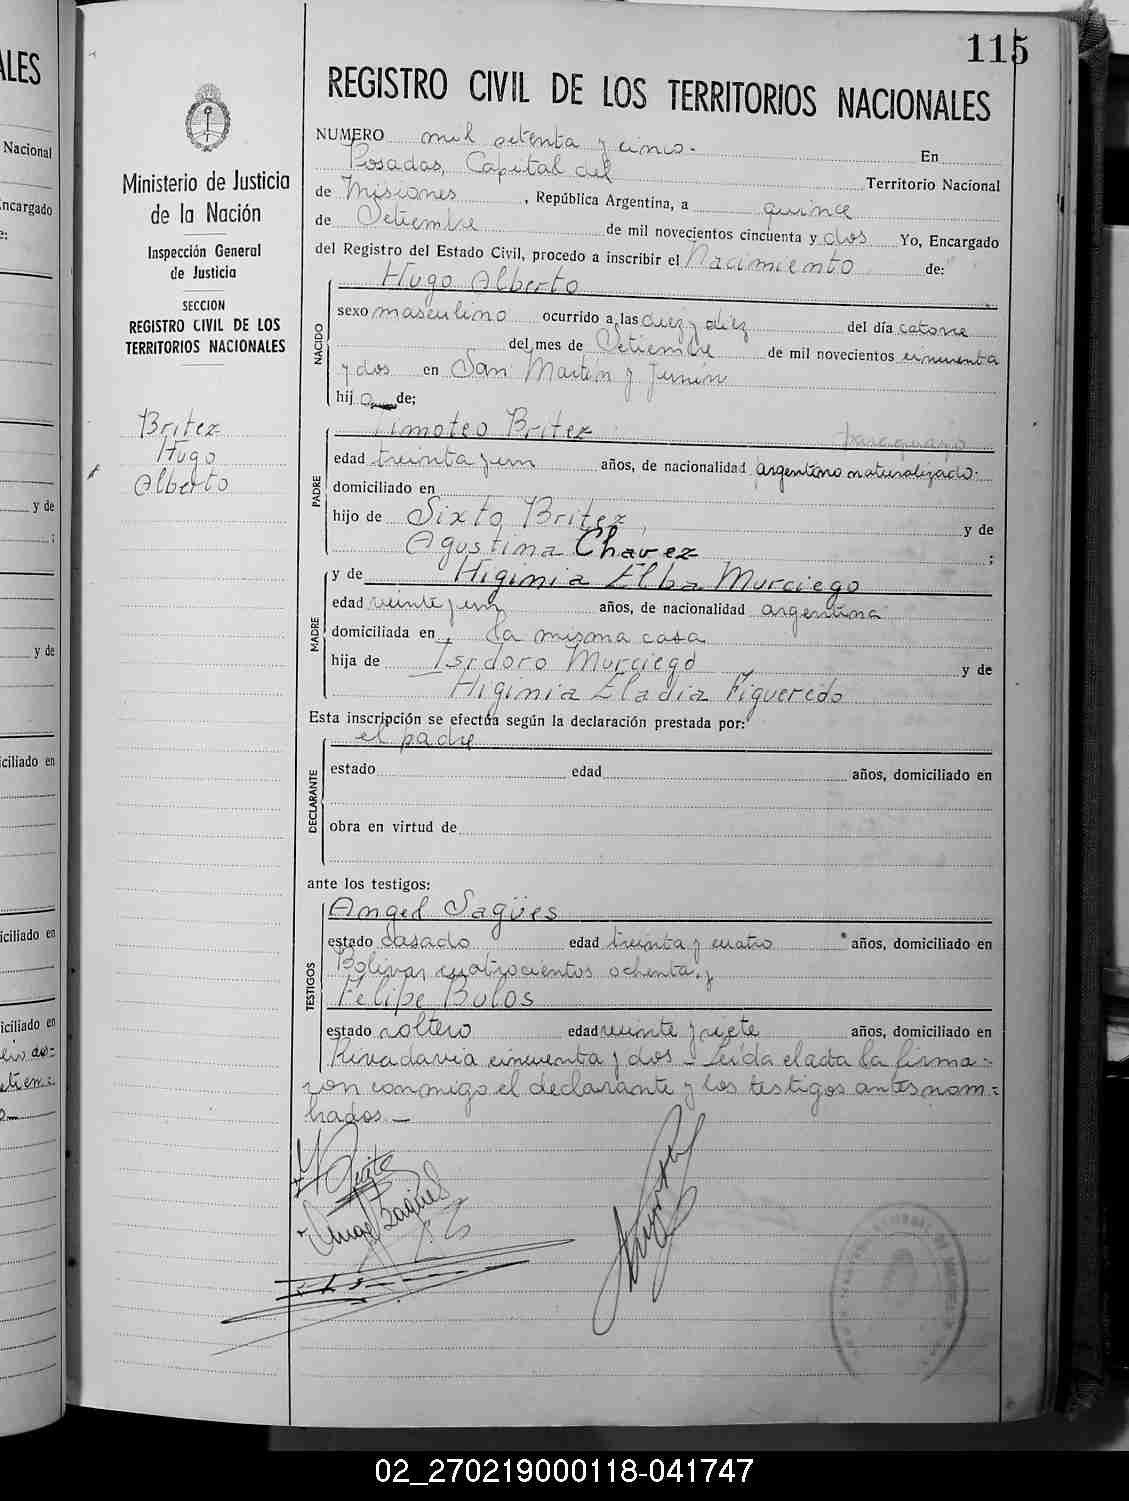 115
REGISTRO CIVIL DE LOS TERRITORIOS NACIONALES
Ministerio de Justicia
de la Nación
Inspección General
de Justicia
SECCION
REGISTRO CIVIL DE LOS
TERRITORIOS NACIONALES
Britez
Hugo
Alberto
NUMERO mil setenta y cinco.- En
Posadas, Capital del Territorio Nacional
de Misiones, República Argentina, a quince
de Setiembre de mil novecientos cincuenta y dos Yo, Encargado
del Registro del Estado Civil, procedo a inscribir el Nacimiento de:
Hugo Alberto
NACIDO
sexo masculino ocurrido a las diez y diez del día catorce
del mes de Setiembre de mil novecientos cincuenta
y dos en San Martin y Junin
hijo de;
Timoteo Britez paraguayo
PADRE
edad treinta y un años, de nacionalidad argentino naturalizado.
domiciliado en
hijo de Sixto Britez, y de
Agustina Chavez ;
y de Higinia Elba Murciego
MADRE
edad veinte y un años, de nacionalidad argentina
domiciliada en la misma casa
hija de Isidoro Murciego y de
Higinia Eladia Figueredo
Esta inscripción se efectúa según la declaración prestada por:
el padre
DECLARANTE
estado edad años, domiciliado en
obra en virtud de
ante los testigos:
Angel Sagües
TESTIGOS
estado casado edad treinta y cuatro años, domiciliado en
Bolivar cuatrocientos ochenta y
Felipe Bulos
estado soltero edad veinte y siete años, domiciliado en
Rivadavia cincuenta y dos - Leída el acta la firma=
ron conmigo el declarante y los testigos antes nom=
brados.-
T Britez
Angel Sagües
ALES
Nacional
Encargado
e:
y de
;
y de
ciliado en
iciliado en
iciliado en
02_270219000118-041747